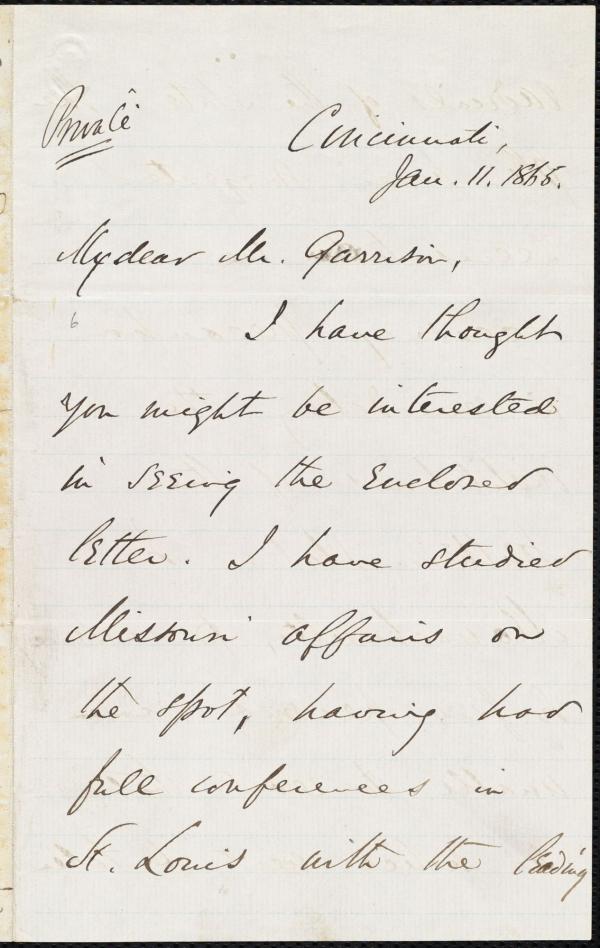 Private
Cincinnati,
Jan. 11. 1865.
My dear Mr. Garrison,
6
I have thought
you might be interested
in seeing the enclosed
letter. I have studied
Missouri affairs on
the spot, having had
full conferences in
St. Louis with the leading